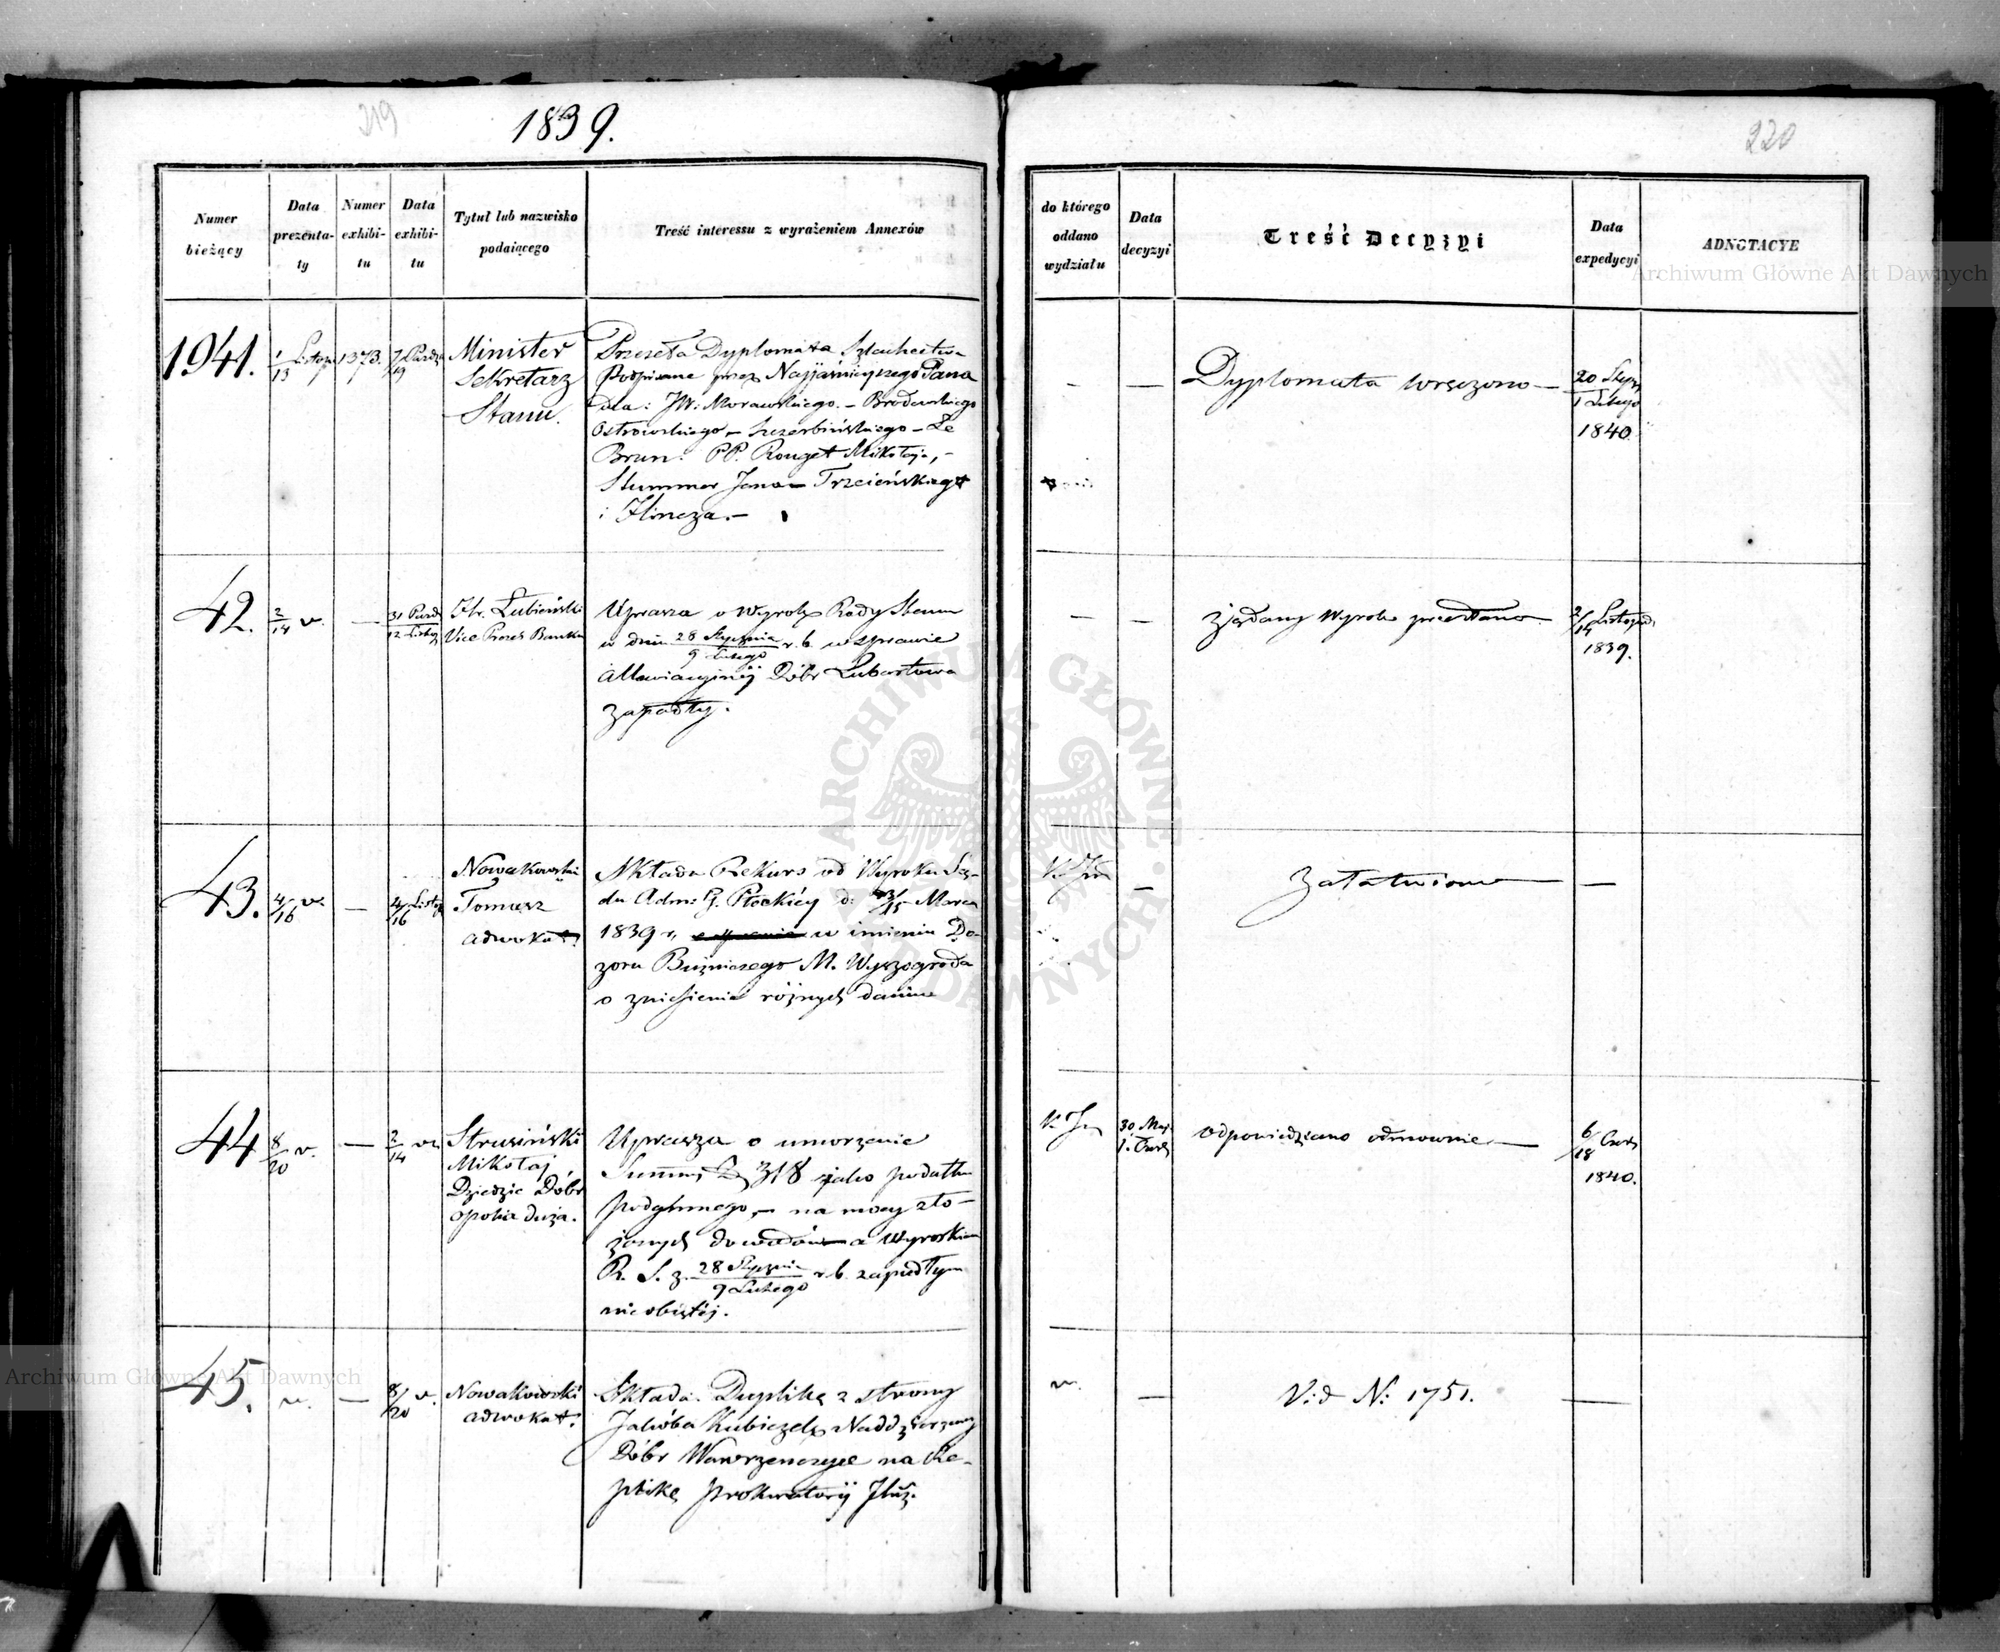 219
1839.
220
Numer bieżący
Data prezenta-ty
Numer exhibi-tu
Data exhibi-tu
Tytuł lub nazwisko podaiącego
Treść interessu z wyrażeniem Annexów
do którego oddano wydziału
Data decyzyi
Treść Decyzyi
Data expedycyi
ADNOTACYE
1941.
1/13 Listop
1373.
7/19 Paźdz
Minister
Sekretarz
Stanu.
Przesyła Dyplomata Szlachectwa
Podpisane przez Najjaśniejszego Pana
dla: JW: Morawskiego. – Brodowskiego
Ostrowskiego, – Szczerbińskiego – Le
Brun. PP. Rouget Mikołaja, –
Stummer Jana – Trzcieńskiego
i Hincza. –
—
—
Dyplomata wręczono —
20 Stycz
1 Lutego
1840.
42.
2/14 v.
—
31 Paźdz
12 Listop
Hr. Łubieński
Vice Prezes Banku
Uprasza o Wyrok Rady Stanu
w dniu 28 Stycznia / 9 Lutego r. b. w sprawie
Dóbr Lubartowa
zapadły.
—
—
żądany Wyrok przesłano
2/14 Listopada
1839.
43.
4/16 v.
—
4/16 Listop
Nowakowski
Tomasz
adwokat.
Składa Rekurs od Wyroku Są-
du Adm: G. Płockiéy d: 3/15 Marca
1839 r, w imieniu Do-
zoru Bużniczego M. Wyszogroda
o zniesienie różnych danin
—
Załatwiono
—
44
8/20 v.
—
2/14 v.
Strusiński
Mikołaj
Dziedzic Dóbr
Opolia duża.
Uprasza o umorzenie
Summy 318 jako podatku
podymnego, – na mocy zło-
żonych dowodów a Wyrokiem
R. S. z. 28 Stycznia / 9 Lutego r. b. zapadłym
nie obiętéj.
30 Maj
1. Czerw
odpowiedziano odmownie —
6/18 Czerw
1840.
45.
v.
—
8/20 v.
Nowakowski
adwokat.
Składa Duplikę z strony
Jakóba Kubiczek Naddzierżawcy
Dóbr Wawrzenczyce na Re-
plikę Prokuratoryi
v.
—
Vid N: 1751.
—
Archiwum Główne Akt Dawnych
ARCHIWUM GŁÓWNE AKT DAWNYCH
Archiwum Główne Akt Dawnych